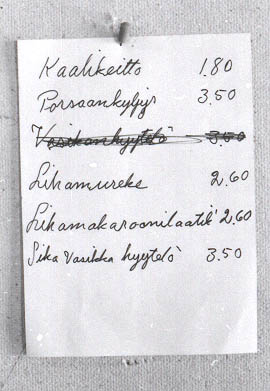 Kaalikeitto 1.80
Porsaankyljys 3.50
Vasikanhyytelö 3.50
Lihamureke 2.60
Lihamakaroonilaatik 2.60
Sika Vasikka hyytelö 3.50